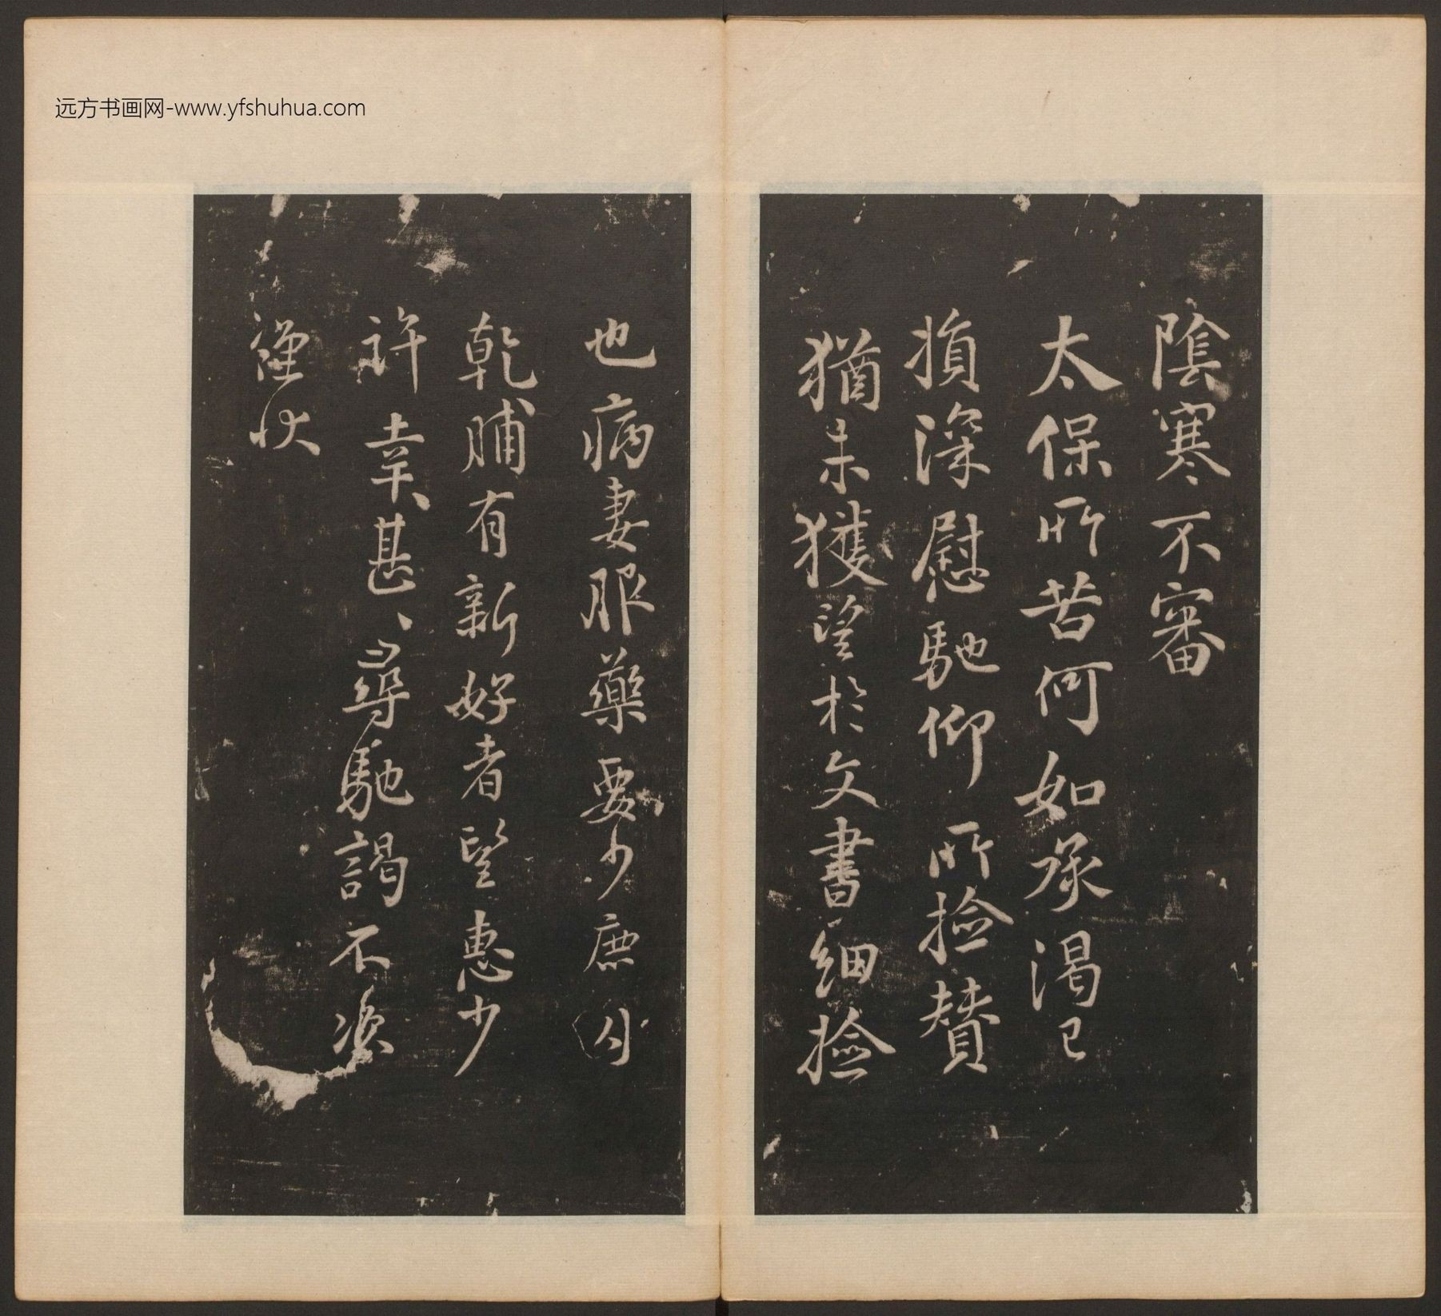 远方书画网-www.yfshuhua.com
陰寒不審
太保所苦何如承渴已
損深慰馳仰所撿賛
猶未獲望於文書細撿
也病妻服藥要少鹿肉
乾脯有新好者望惠少
許幸甚、尋馳謁不次
謹狀